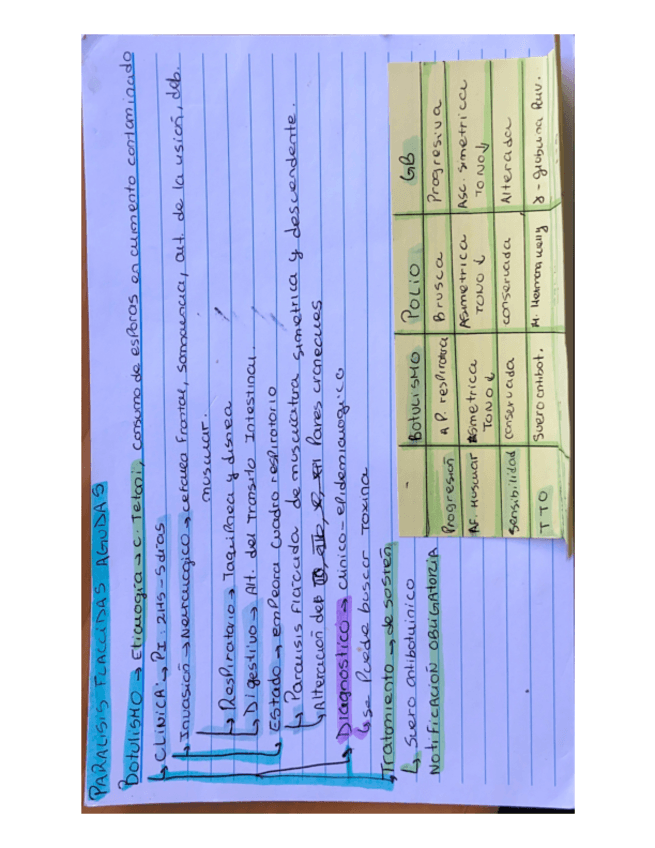 PARALISIS FLACCIDAS AGUDAS
BOTULISMO → Etiologia → C. Tetani, consumo de esporas en alimento contaminado
↳ CLINICA: → PI: 2HS - 5 dias
↳ Invasión → Neurologico → cefalea Frontal, somnolencia, alt. de la vision, deb. muscular.
↳ Respiratorio → Taquipnea y disnea
↳ Digestivo → Alt. del Transito Intestinal.
↳ Estado → empeora cuadro respiratorio
↳ Paralisis Flaccida de musculatura simetrica y descendente.
↳ Alteración deb Pares craneales
↳ Diagnostico → clinico - epidemiologico
↳ se Puede buscar Toxina
↳ Tratamiento → de sostén
↳ Suero antibotulinico
NOTIFICACIÓN OBLIGATORIA
BOTULISMO POLIO GB
Progresión AP. respiratoria Brusca Progresiva
AF. Muscular Asimetrica TONO ↓ Asimetrica TONO ↓ Asc. simetrica TONO ↓
Sensibilidad conservada conservada Alterada
TTO Suero antibot. γ - globulina